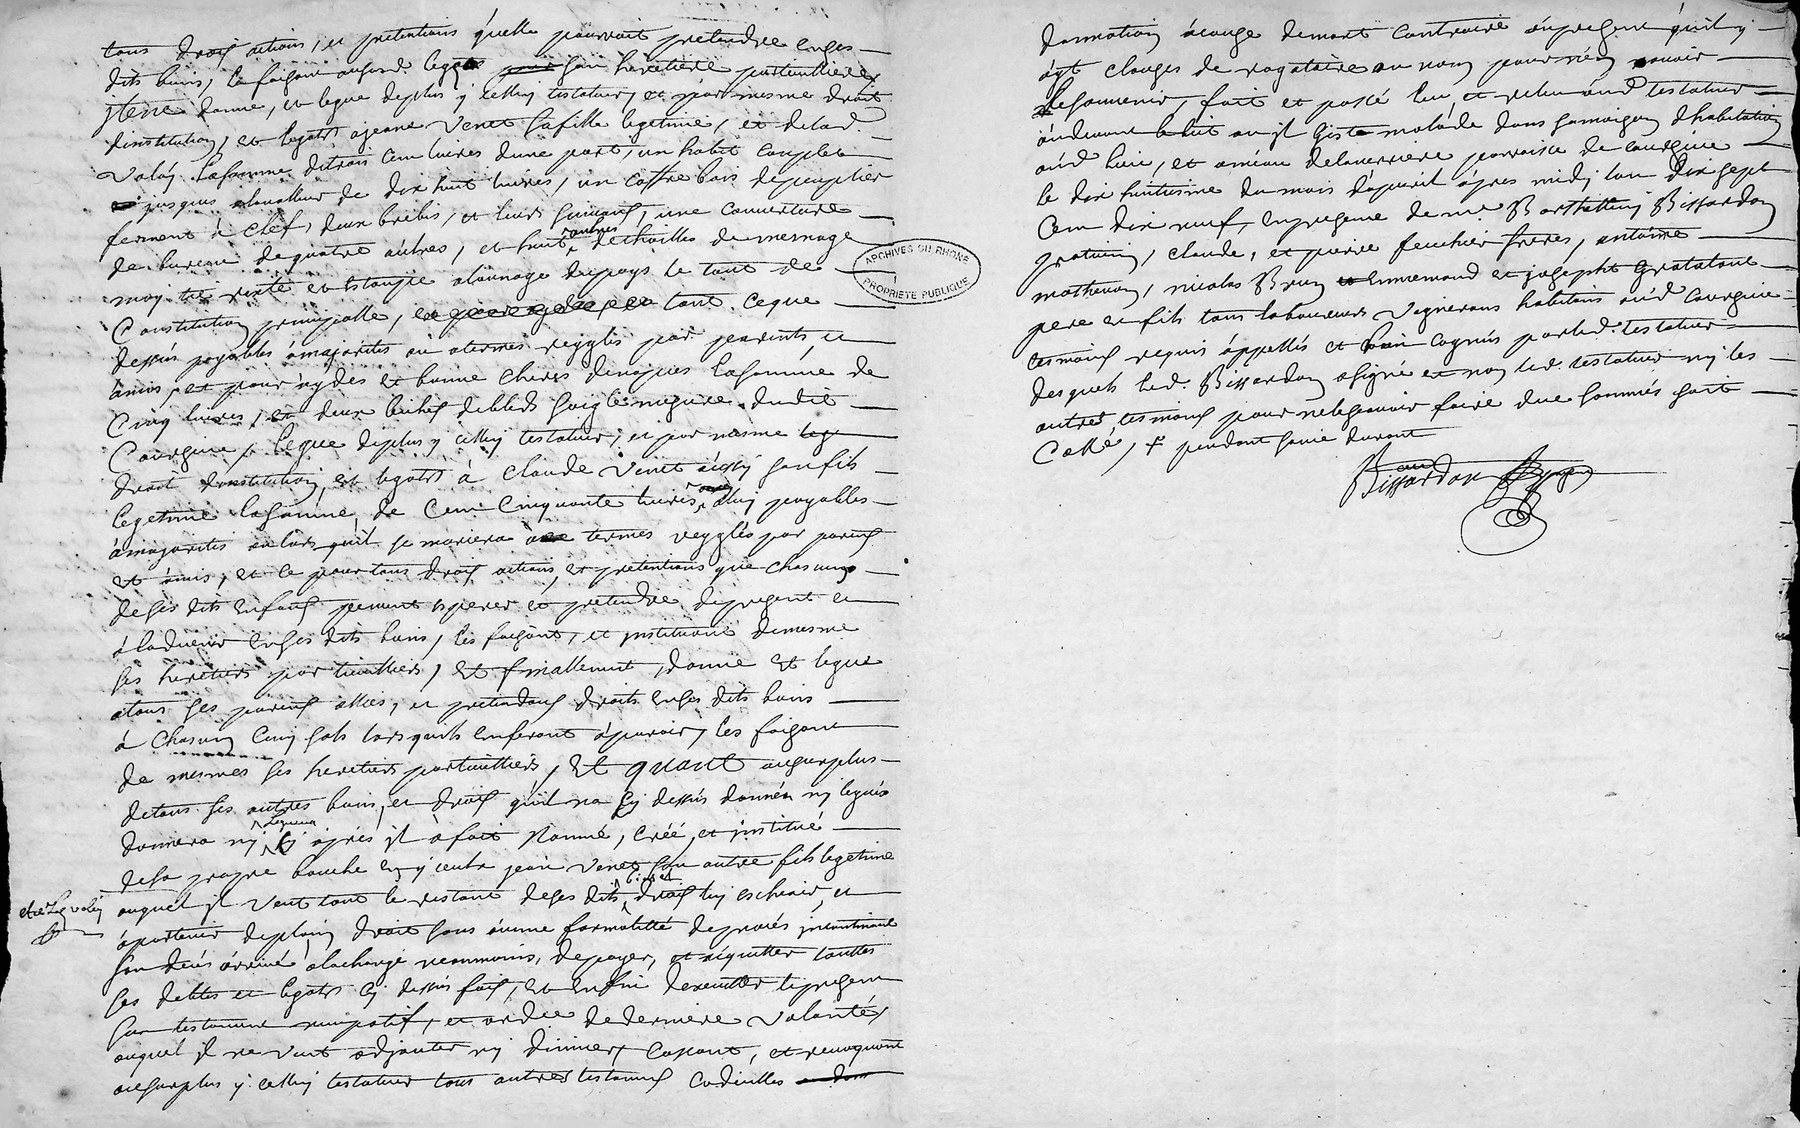 tous droits actions, et pretentions qu'elle pourroit pretendre en ses
dits biens, la faisant audit legat son heretiere particulliere
Item donne, et legue deplus y celluy testateur, et par mesme droit
dinstitution, et legats a jeane Venet sa fille legetime, et delad.
Valoy la somme de trois cent livres dune part, un habit complet
jusques alavalleur de dix huit livres, un coffre bois de peuplier
fermant à clef, deux brebis, et leurs suivants, une couverture
de bureau de quatre aulnes, et huit aulnes de thoilles de mesnage
moytié rixte et estoupe alaunage du pays le tout de
Constitution principalle, tant ce que
dessus payables à majorités ou a termes regglés par parents et
amis, et pour aydes et bonne cheres de nopces la somme de
Cinq livres, et deux bichets de bled soigle mezure dudit
Courzieu, legue deplus y celluy testateur, et par mesme
droit dinstitution, et legats à Claude Venet aussy son fils
legetime la somme de Cent Cinquante livres, payables
à majorités ou lors quil se mariera a termes regglés par parents
et amis, et ce pour tous droits actions, et pretentions que chascungs
de ses dits enfants peuvent esperer et pretendre de present et
à ladvenir en ses dits biens, les faisant, et instituant de mesme
ses heretiers particulliers, Et finallement, donne et legue
atous ses parents alliés, et pretendans droits en ses dits biens
à chascung cinq sols lors quils en feront aparoir, les faisant
de mesmes ses heretiers particulliers, Et quant au surplus
de tous ses autres biens, et droits quil na cy dessus donnés ny legués
donnera ny leguera cy apres il à fait nommé, créé, et institué
de sa propre bouche jean Venet son autre fils legetime
et de lad valoy
auquel il veut tout le restant de ses dits biens et droits luy escheoir, et
apartenir de plain droit sans aucune formallité de procés incontinant
son decés arrivé, à la charge neanmoins, de payer, et aquitter touttes
ses debtes et legats cy dessus faits, et enfin dexecutter le present
son testament nuncupatif, et ordre de derniere volonté,
auquel il ne veut adjouter ny diminer, Cassant, et revoquant
au surplus y celluy testateur tous autres testaments codicilles
donnation à cause de mort contraire au present quil y
ayt clauses de rogatoire ou non pour nen avoir
le souvenir, fait et passé leu, et releu aud testateur
au devant le lit ou il gist malade dans sa maison dhabitation
aud lieu, et parroisse de Courzieu
le dix huitiesme du mois dapvril apres midy lan dix sept
Cent dix neuf, en presence de me. Barthellemy Bissardon
praticien, Claude, et pierre feuchier freres, antoine
mathevon, nicolas Brun ennemond et josepht Gratalout
pere et fils tous laboureurs Vignerons habitans aud Courzieu
tesmoins requis appellés et bien cognus par led. testateur
desquels led. Bissardon a signé et non led. testateur ny les
autres tesmoins pour ne le scavoir faire due sommés soit
Collé, + pendant sa vie durant
Bissardon
ARCHIVES DU RHONE
PROPRIETE PUBLIQUE